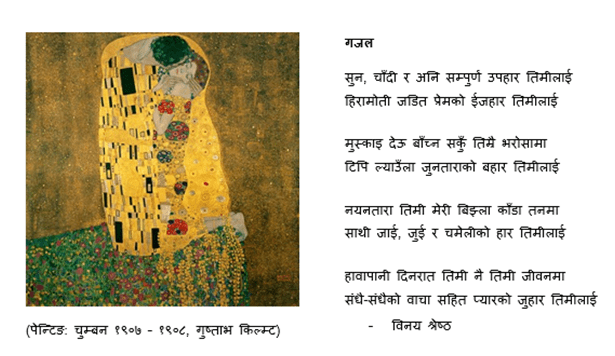 गजल
सुन, चाँदी र अनि सम्पुर्ण उपहार तिमीलाई
हिरामोती जडित प्रेमको ईजहार तिमीलाई
मुस्काइ देऊ बाँच्न सकुँ तिमै भरोसामा
टिपि ल्याउँला जुनताराको बहार तिमीलाई
नयनतारा तिमी मेरी बिझ्ला काँडा तनमा
साथी जाई, जुई र चमेलीको हार तिमीलाई
हावापानी दिनरात तिमी नै तिमी जीवनमा
संधै-संधैको वाचा सहित प्यारको जुहार तिमीलाई
- विनय श्रेष्ठ
(पेन्टिङ: चुम्बन १९०७ - १९०८, गुष्ताभ किल्म्ट)